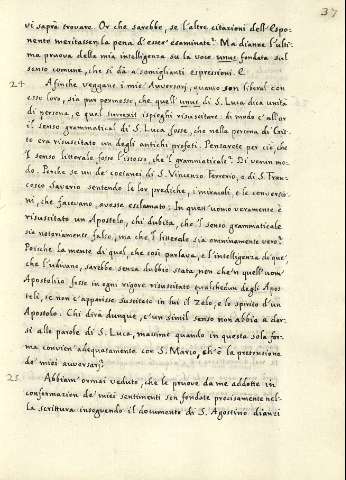 37
vi saprà trovare. Or che sarebbe, se l'altre citazioni dell'Espo-
nento meritassen la pena d'esser esaminate? Ma diamo l'ulti-
ma pruova della mia intelligenza su la voce unus fondata sul
senso comune, che si dà a somiglianti espressioni. E
24 Affinche veggano i miei Avversarj, quanto son liberal con
esse loro, sia pur permesso, che quell'unus di S. Luca dica unità
di persona, e quel surrexit ispieghi risuscitare: di modo c'all'or
il senso grammatical di S. Luca fosse, che nella persona di Cris-
to era risuscitato un degli antichi profeti. Pensarete per ciò, che
'l senso litterale fosse l'istesso, che 'l grammaticale? Di verun mo-
do. Perche se un de' coetanei di S. Vincenzo Ferrerio, o di S. Fran-
cesco Saverio sentendo le lor prediche, i miracoli, e le conversio-
ni, che facevano, avesse esclamato: In quest'uomo veramente è
risuscitato un Apostolo, chi dubita, che 'l senso grammaticale
sia notoriamente falso, ma che 'l litterale sia onninamente vero?
Poiche la mente di quel, che così parlava, e l'intelligenza di que',
che l'udivano, sarebbe senza dubbio stata, non che 'n quell'uom
Apostolico fosse in ogni rigore risuscitato qualchedun degli Apos-
toli, se non c'apparisse suscitato in lui il zelo, e lo spirito d'un
Apostolo. Chi dirà dunque, c'un simil senso non abbia a dar-
si alle parole di S. Luca, massime quando in questa sola for-
ma convien adequatamente con S. Marco, ch'è la pretensione
de' miei avversarj?
25 Abbiam ormai veduto, che le pruove da me addotte in
confermazion de' miei sentimenti son fondate precisamente nel-
la scrittura inseguendo il documento di S. Agostino dianzi